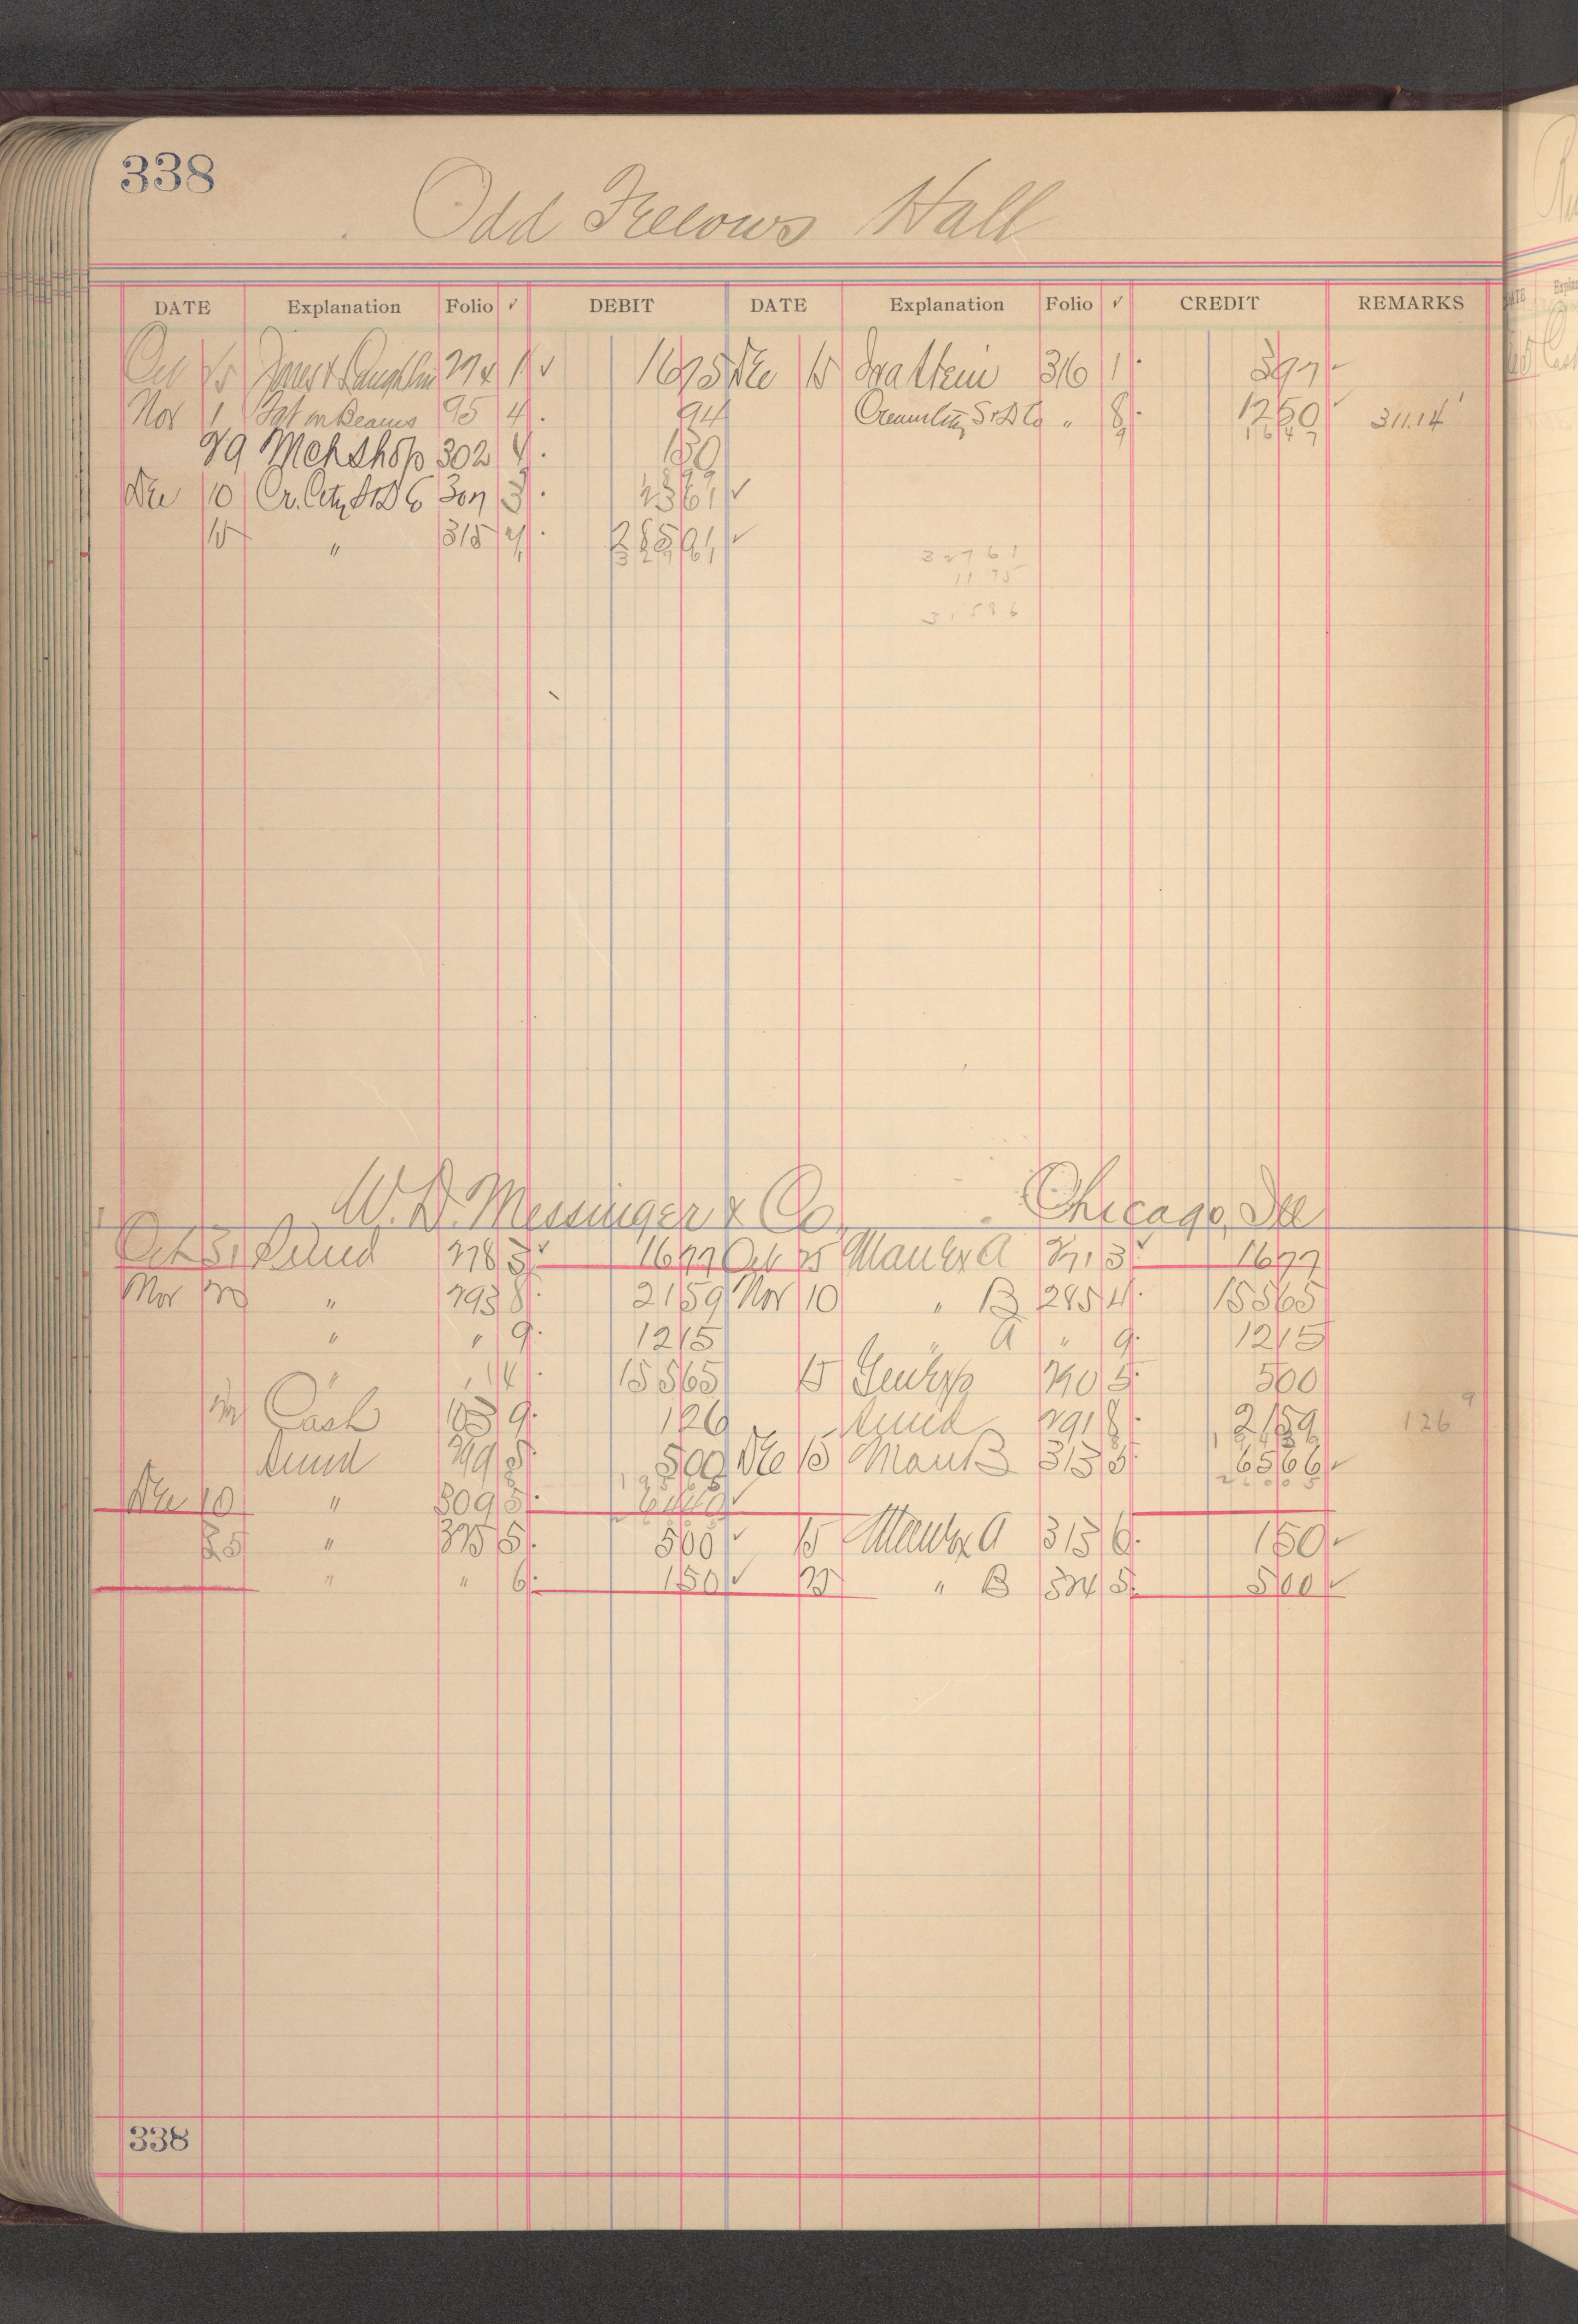 338
Odd Fellows Hall
DATE Explanation Folio ✓ DEBIT DATE Explanation Folio ✓ CREDIT REMARKS
Oct 25 Jones & Laughlin 274 1 ✓ 1675 Dec 15 316 1 397 ✓
Nov 1 Frt on Beams 95 4 94 Cream City S & D Co " 8 1250 ✓ 311.14
29 Mch Shop 302 4 150
Dec 10 Cr. City S & D Co 307 3 ✓
15 " 315 ✓
32761
1175
31586
W. D. Messinger & Co. Chicago, Ill
Oct 31 Sund 278 3 ✓ 1677 Oct 25 Man Ex A 271 3 ✓ 1677
Nov 20 " 293 8 2159 Nov 10 " B 285 4 15565
" " 9 1215 " A " 9 1215
" " 14 15565 15 Gen Exp 290 5 500
Cash 9 126 Sund 291 8 2159 126
Sund 299 5 500 Dec 15 Man B 313 5 6566 ✓
Dec 10 " 309 5 6440 ✓
25 " 325 5 500 ✓ 15 Man Ex A 313 6 150 ✓
" " 6 150 ✓ 25 " B 324 5 500 ✓
338